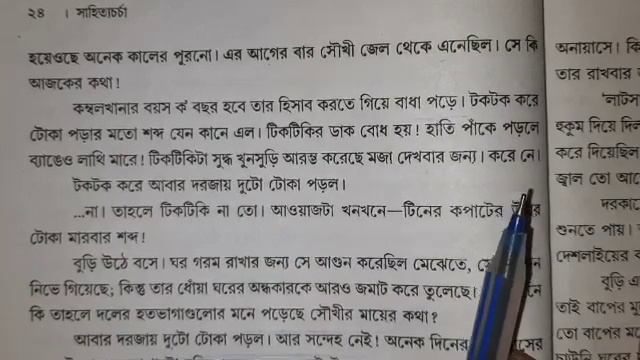 ২৪ । সাহিত্যচর্চা
হয়েওছে অনেক কালের পুরনো। এর আগের বার সৌখী জেল থেকে এনেছিল। সে কি
আজকের কথা!
কম্বলখানার বয়স ক' বছর হবে তার হিসাব করতে গিয়ে বাধা পড়ে। টকটক করে
টোকা পড়ার মতো শব্দ যেন কানে এল। টিকটিকির ডাক বোধ হয়! হাতি পাঁকে পড়লে
ব্যাঙেও লাথি মারে! টিকটিকিটা সুদ্ধ খুনসুড়ি আরম্ভ করেছে মজা দেখবার জন্য। করে নে।
টকটক করে আবার দরজায় দুটো টোকা পড়ল।
...না। তাহলে টিকটিকি না তো। আওয়াজটা খনখনে—টিনের কপাটের
টোকা মারবার শব্দ!
বুড়ি উঠে বসে। ঘর গরম রাখার জন্য সে আগুন করেছিল মেঝেতে,
নিভে গিয়েছে; কিন্তু তার ধোঁয়া ঘরের অন্ধকারকে আরও জমাট করে তুলেছে।
কি তাহলে দলের হতভাগাগুলোর মনে পড়েছে সৌখীর মায়ের কথা?
আবার দরজায় দুটো টোকা পড়ল। আর সন্দেহ নেই! অনেক দিনের
অনায়াসে। কি
তার রাখবার
হুকুম দিয়ে দিল
করে দিয়েছিল
জ্ঞান তো আছে
শুনতে পায়।
দেশলাইয়ের
বুড়ি এ
তাই বাপের মু
তো বাপের ম